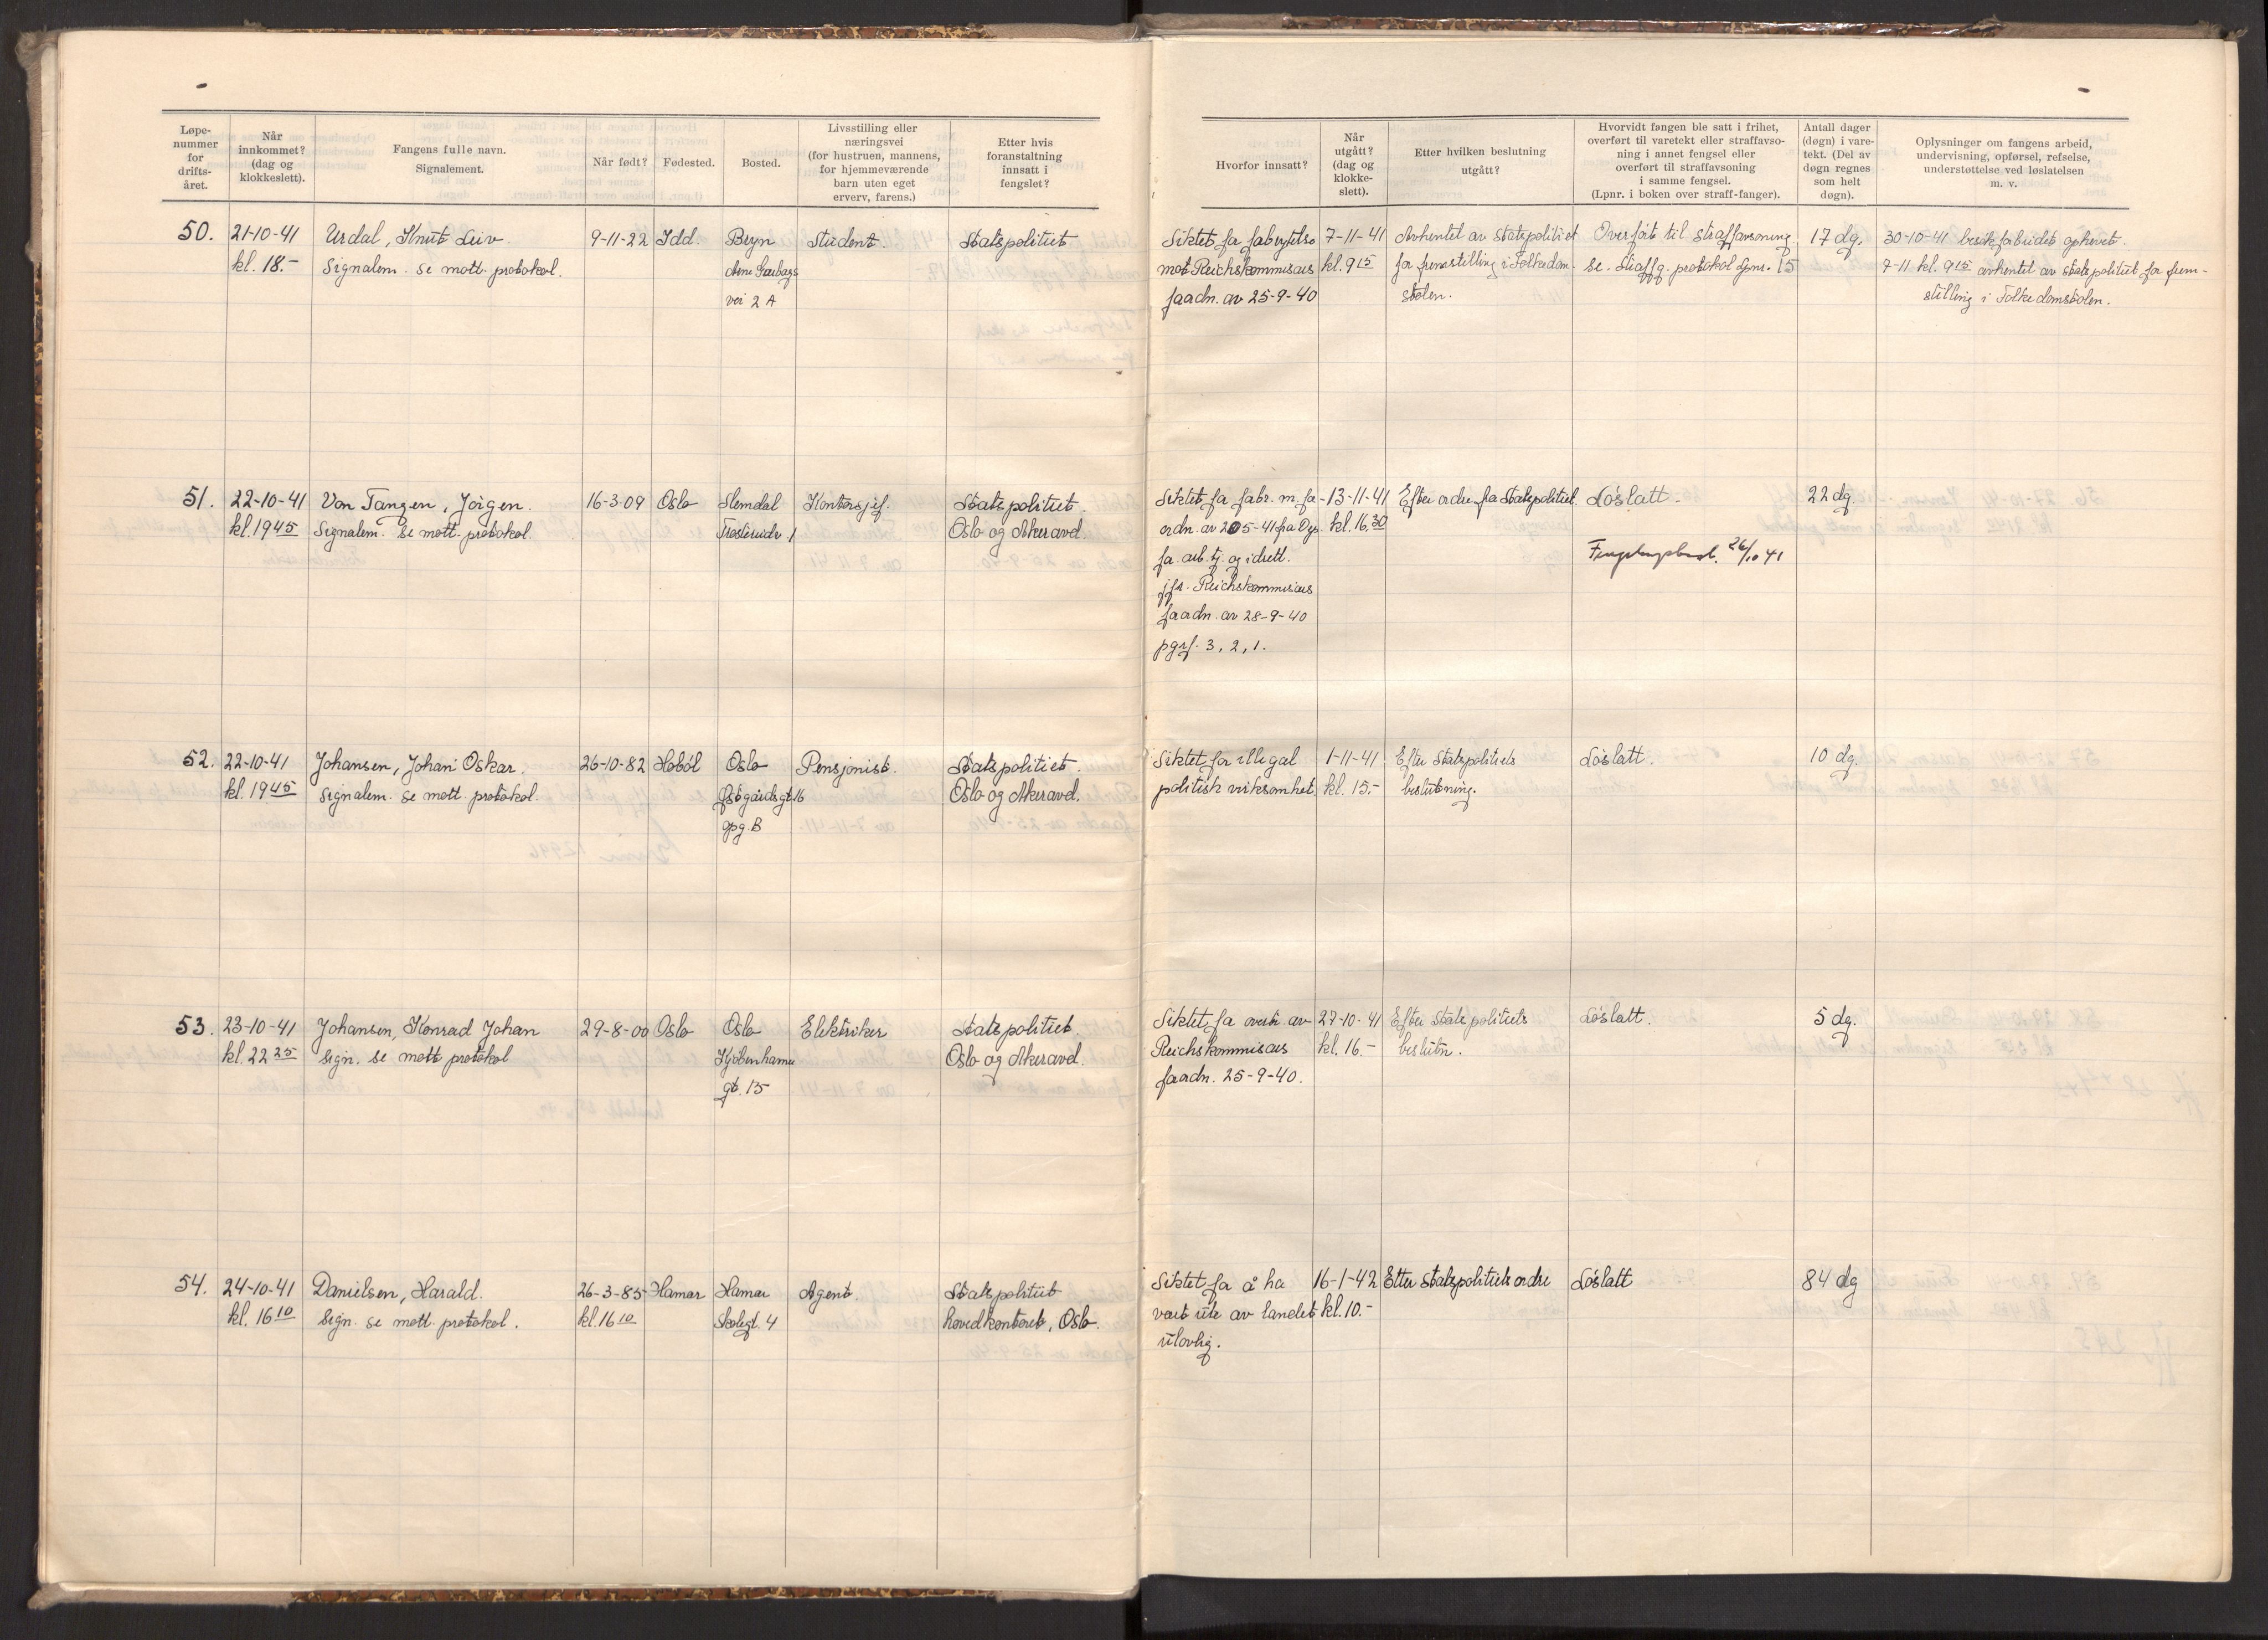 Løpe-
nummer
for
drifts-
året.
Når
innkommet?
(dag og
klokkeslett).
Fangens fulle navn.
Signalement.
Når født?
Fødested.
Bosted.
Livsstilling eller
næringsvei
(for hustruen, mannens,
for hjemmeværende
barn uten eget
erverv, farens.)
Etter hvis
foranstaltning
innsatt i
fengslet?
Hvorfor innsatt?
Når
utgått?
(dag og
klokke-
slett).
Etter hvilken beslutning
utgått?
Hvorvidt fangen ble satt i frihet,
overført til varetekt eller straffavso-
ning i annet fengsel eller
overført til straffavsoning
i samme fengsel.
(Lpnr. i boken over straff-fanger).
Antall dager
(døgn) i vare-
tekt. (Del av
døgn regnes
som helt
døgn).
Oplysninger om fangens arbeid,
undervisning, opførsel, refselse,
understøttelse ved løslatelsen
m. v.
50.
21-10-41
kl. 18.-
Urdal, Knut Leiv.
Signalem. se mott. protokol.
9-11-22
Idd.
Bryn
vei 2 A
Student.
Statspolitiet
Siktet for forbrytelse
mot Reichskommisars
foordn. av 25-9-40
7-11-41
kl. 9 15
Avhentet av statspolitiet
for fremstilling i Folkedom-
stolen.
Overført til straffavsoning.
se. Straffg. protokol Lpnr. 15
17 dg.
30-10-41 besøkforbudet ophevet.
7-11 kl. 9 15 avhentet av statspolitiet for frem-
stilling i Folkedomstolen.
51.
22-10-41
kl. 19 45
Von Tangen, Jørgen.
Signalem. se mott. protokol.
16-3-09
Oslo
Slemdal
Trosterudv. 1
Kontorsjef.
Statspolitiet.
Oslo og Akeravd.
Siktet for forbr. m. for-
ordn. av 205-41 fra Dep.
for. arb. tj. og idrett.
jfr. Reichskommisars
foordn. av 28-9-40
pgrf. 3, 2, 1.
13-11-41
kl. 16.30
Efter ordre fra Statspolitiet.
Løslatt.
26/10 41
22 dg.
52.
22-10-41
kl. 19 45
Johansen, Johan Oskar.
Signalem. se mott. protokol.
26-10-82
Hobøl
Oslo
Østgaardsgt. 16
opg. B
Pensjonist.
Statspolitiet.
Oslo og Akeravd.
Siktet for illegal
politisk virksomhet.
1-11-41
kl. 15.-
Efter Statspolitiets
beslutning.
Løslatt.
10 dg.
53.
23-10-41
kl. 22 25
Johansen, Konrad Johan
Sign. se mott protokol
29-8-00
Oslo
Oslo
Kjøbenhavns
gt. 15
Elektriker
Statspolitiet.
Oslo og Akeravd.
Siktet for overtr. av
Reichskommisars
foordn. 25-9-40.
27-10-41
kl. 16.-
Efter Statspolitiets
beslutn.
Løslatt.
5 dg.
54.
24-10-41
kl. 16 10
Danielsen, Harald.
Sign. se mott. protokol.
26-3-85
kl. 16 10
Hamar
Hamar
Skolegt. 4
Agent.
Statspolitiet
hovedkontoret, Oslo.
Siktet for å ha
vært ute av landet
ulovlig.
16-1-42
kl. 10.-
Etter Statspolitiets ordre
Løslatt
84 dg